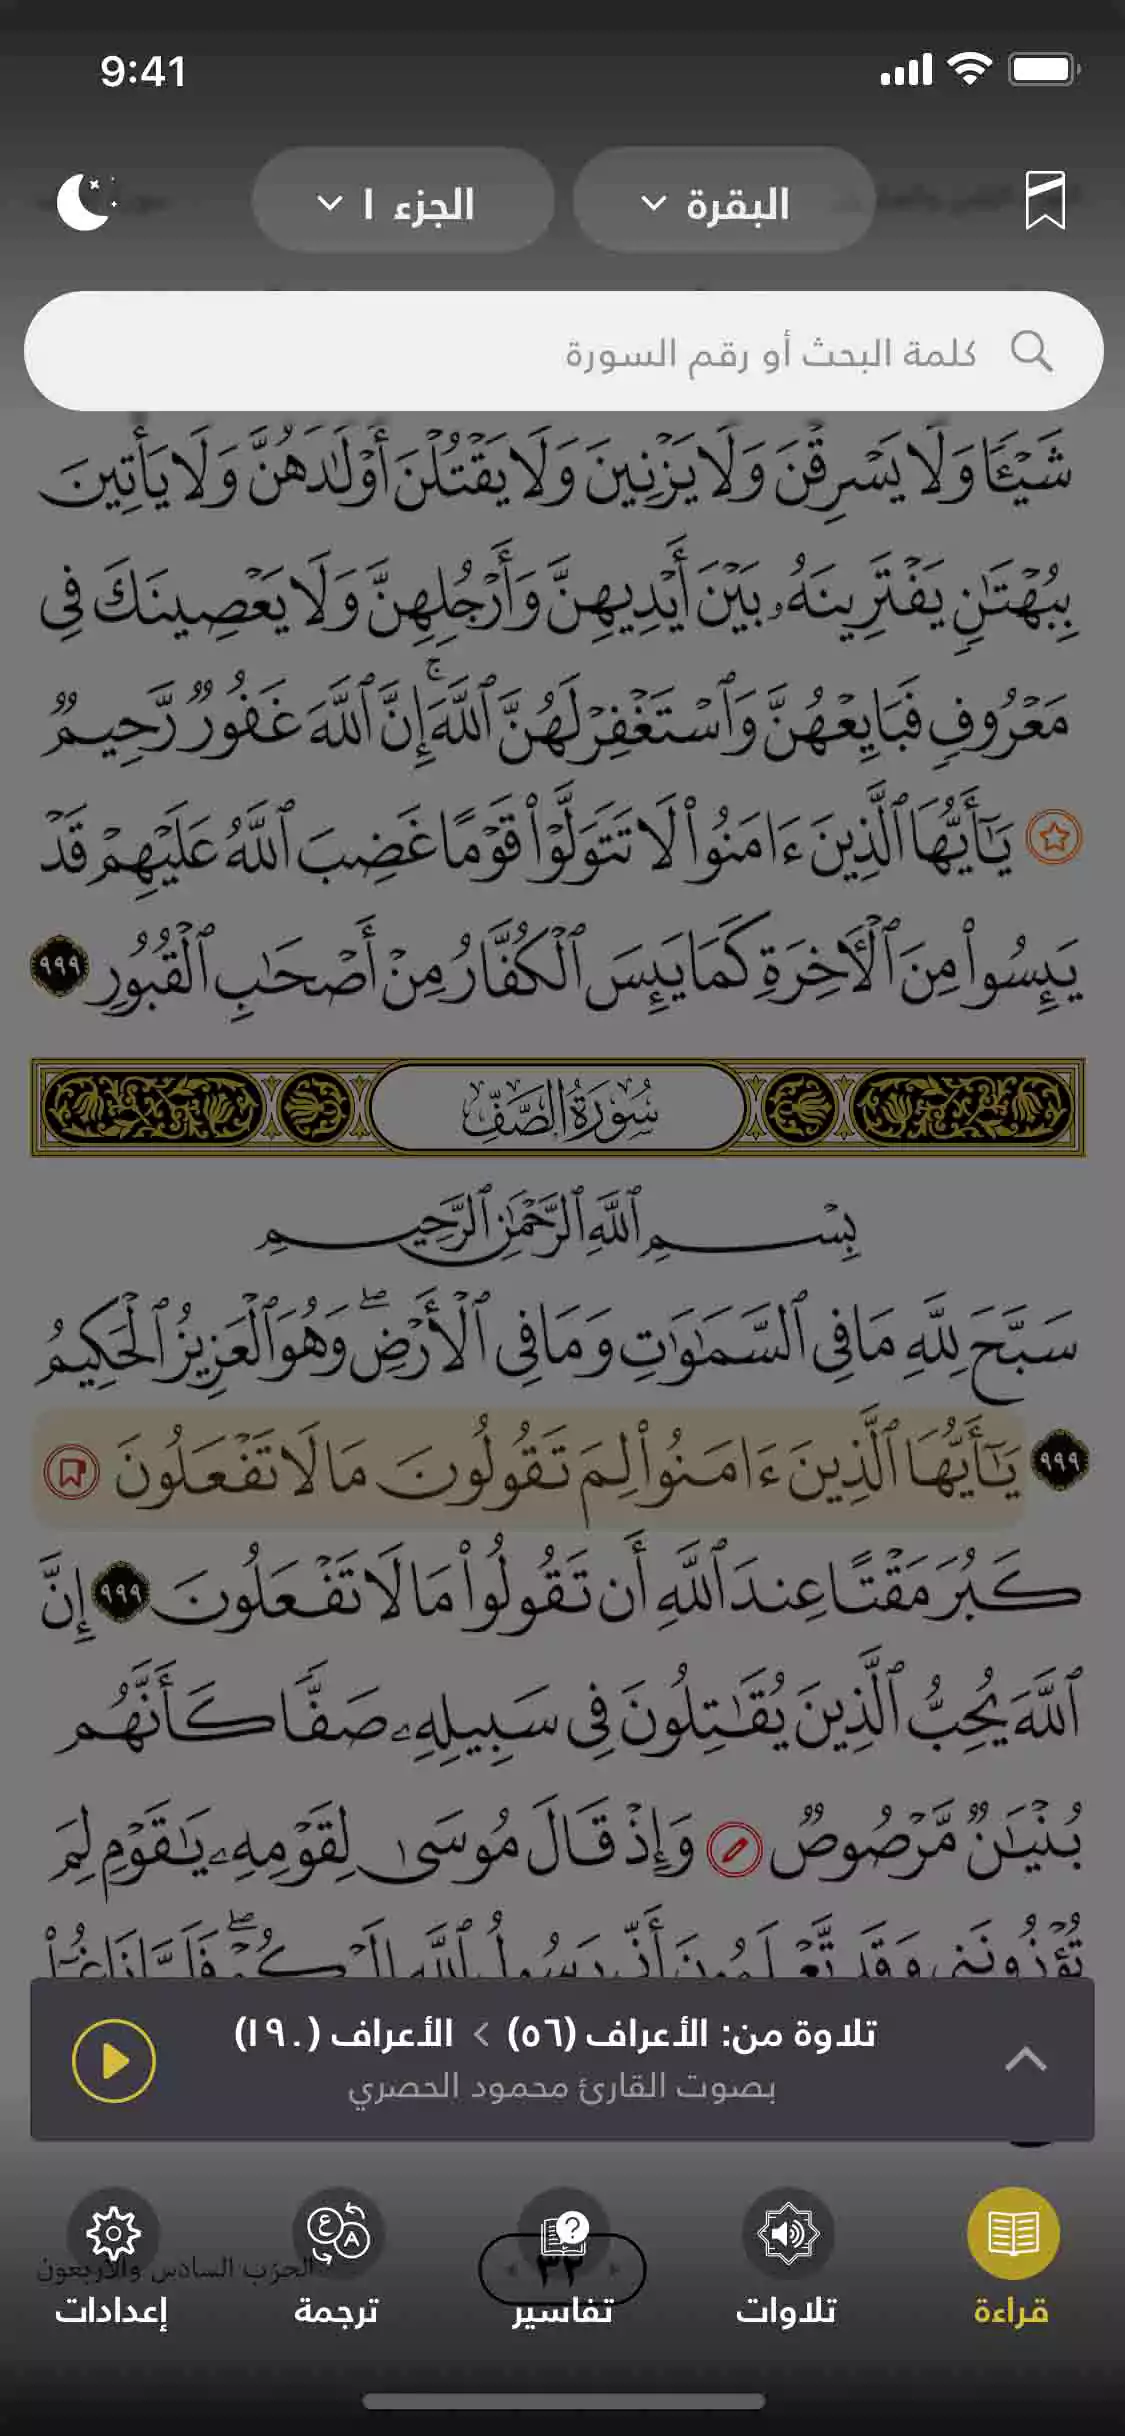 9:41
البقرة
الجزء ١
كلمة البحث أو رقم السورة
شَيْـًٔا وَلَا يَسْرِقْنَ وَلَا يَزْنِينَ وَلَا يَقْتُلْنَ أَوْلَٰدَهُنَّ وَلَا يَأْتِينَ
بِبُهْتَٰنٍ يَفْتَرِينَهُۥ بَيْنَ أَيْدِيهِنَّ وَأَرْجُلِهِنَّ وَلَا يَعْصِينَكَ فِى
مَعْرُوفٍ فَبَايِعْهُنَّ وَٱسْتَغْفِرْ لَهُنَّ ٱللَّهَ ۚ إِنَّ ٱللَّهَ غَفُورٌ رَّحِيمٌ
يَٰٓأَيُّهَا ٱلَّذِينَ ءَامَنُوا۟ لَا تَتَوَلَّوْا۟ قَوْمًا غَضِبَ ٱللَّهُ عَلَيْهِمْ قَدْ
يَئِسُوا۟ مِنَ ٱلْءَاخِرَةِ كَمَا يَئِسَ ٱلْكُفَّارُ مِنْ أَصْحَٰبِ ٱلْقُبُورِ ٩٩٩
سُورَةُ الصَّفِّ
بِسْمِ ٱللَّهِ ٱلرَّحْمَٰنِ ٱلرَّحِيمِ
سَبَّحَ لِلَّهِ مَا فِى ٱلسَّمَٰوَٰتِ وَمَا فِى ٱلْأَرْضِ ۖ وَهُوَ ٱلْعَزِيزُ ٱلْحَكِيمُ
٩٩٩ يَٰٓأَيُّهَا ٱلَّذِينَ ءَامَنُوا۟ لِمَ تَقُولُونَ مَا لَا تَفْعَلُونَ
كَبُرَ مَقْتًا عِندَ ٱللَّهِ أَن تَقُولُوا۟ مَا لَا تَفْعَلُونَ ٩٩٩ إِنَّ
ٱللَّهَ يُحِبُّ ٱلَّذِينَ يُقَٰتِلُونَ فِى سَبِيلِهِۦ صَفًّا كَأَنَّهُم
بُنْيَٰنٌ مَّرْصُوصٌ وَإِذْ قَالَ مُوسَىٰ لِقَوْمِهِۦ يَٰقَوْمِ لِمَ
تُؤْذُونَنِى وَقَد تَّعْلَمُونَ أَنِّى رَسُولُ ٱللَّهِ إِلَيْكُمْ ۖ فَلَمَّا زَاغُوٓا۟
تلاوة من: الأعراف (٥٦) > الأعراف (١٩٠)
بصوت القارئ محمود الحصري
الحزب السادس والأربعون
٣٢
قراءة
تلاوات
تفاسير
ترجمة
إعدادات